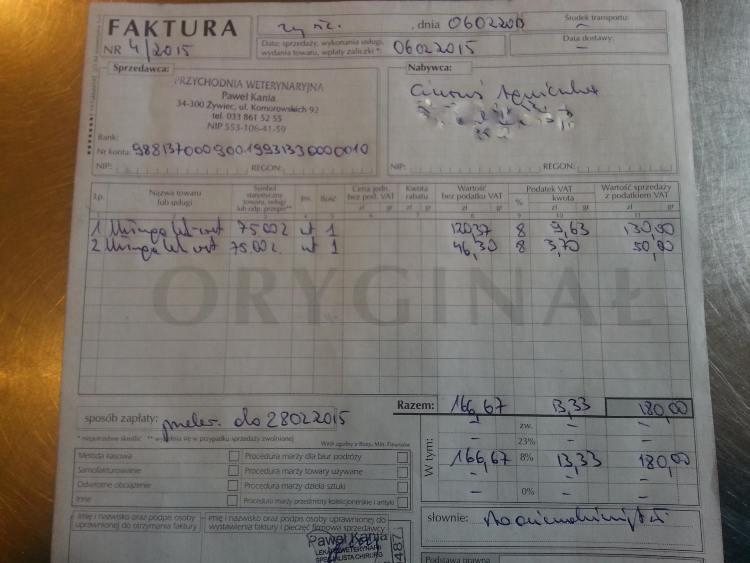 FAKTURA
NR 4/2015
, dnia 06022015
Środek transportu:
Data: sprzedaży, wykonania usługi,
wydania towaru, wpłaty zaliczki *:
06022015
Data dostawy:
Sprzedawca:
PRZYCHODNIA WETERYNARYJNA
Paweł Kania
34-300 Żywiec, ul. Komorowskich 92
tel. 033 861 52 55
NIP 553-106-41-59
Bank:
Nr konta:
NIP:
REGON:
Nabywca:
NIP:
REGON:
Lp.
Nazwa towaru
lub usługi
Symbol
statystyczny
towaru, usługi
lub odp. przepis**
Jm.
Ilość
Cena jedn.
bez pod. VAT
zł gr
Kwota
rabatu
zł gr
Wartość
bez podatku VAT
zł gr
Podatek VAT
%
kwota
zł gr
Wartość sprzedaży
z podatkiem VAT
zł gr
1 Usługa lek-wet 7500Z 1 120,37 8 9,63 130,00
2 Usługa lek wet 7500Z 1 46,30 8 3,70 50,00
ORYGINAŁ
Razem: 166,67 13,33 180,00
sposób zapłaty: przelew do 28022015
W tym:
– zw. – –
– 23% – –
166,67 8% 13,33 180,00
– 0% – –
* niepotrzebne skreślić
Metoda kasowa
Procedura marży dla biur podróży
Samofakturowanie
Procedura marży towary używane
Odwrotne obciążenie
Procedura marży dzieła sztuki
Inne
Procedura marży przedmioty kolekcjonerskie i antyki
słownie:
Imię i nazwisko oraz podpis osoby
uprawnionej do otrzymania faktury
Imię i nazwisko oraz podpis osoby uprawnionej do
wystawienia faktury i pieczęć firmowa sprzedawcy
Paweł Kania
LEKARZ WETERYNARII
SPECJALISTA CHIRURG
Podstawa prawna